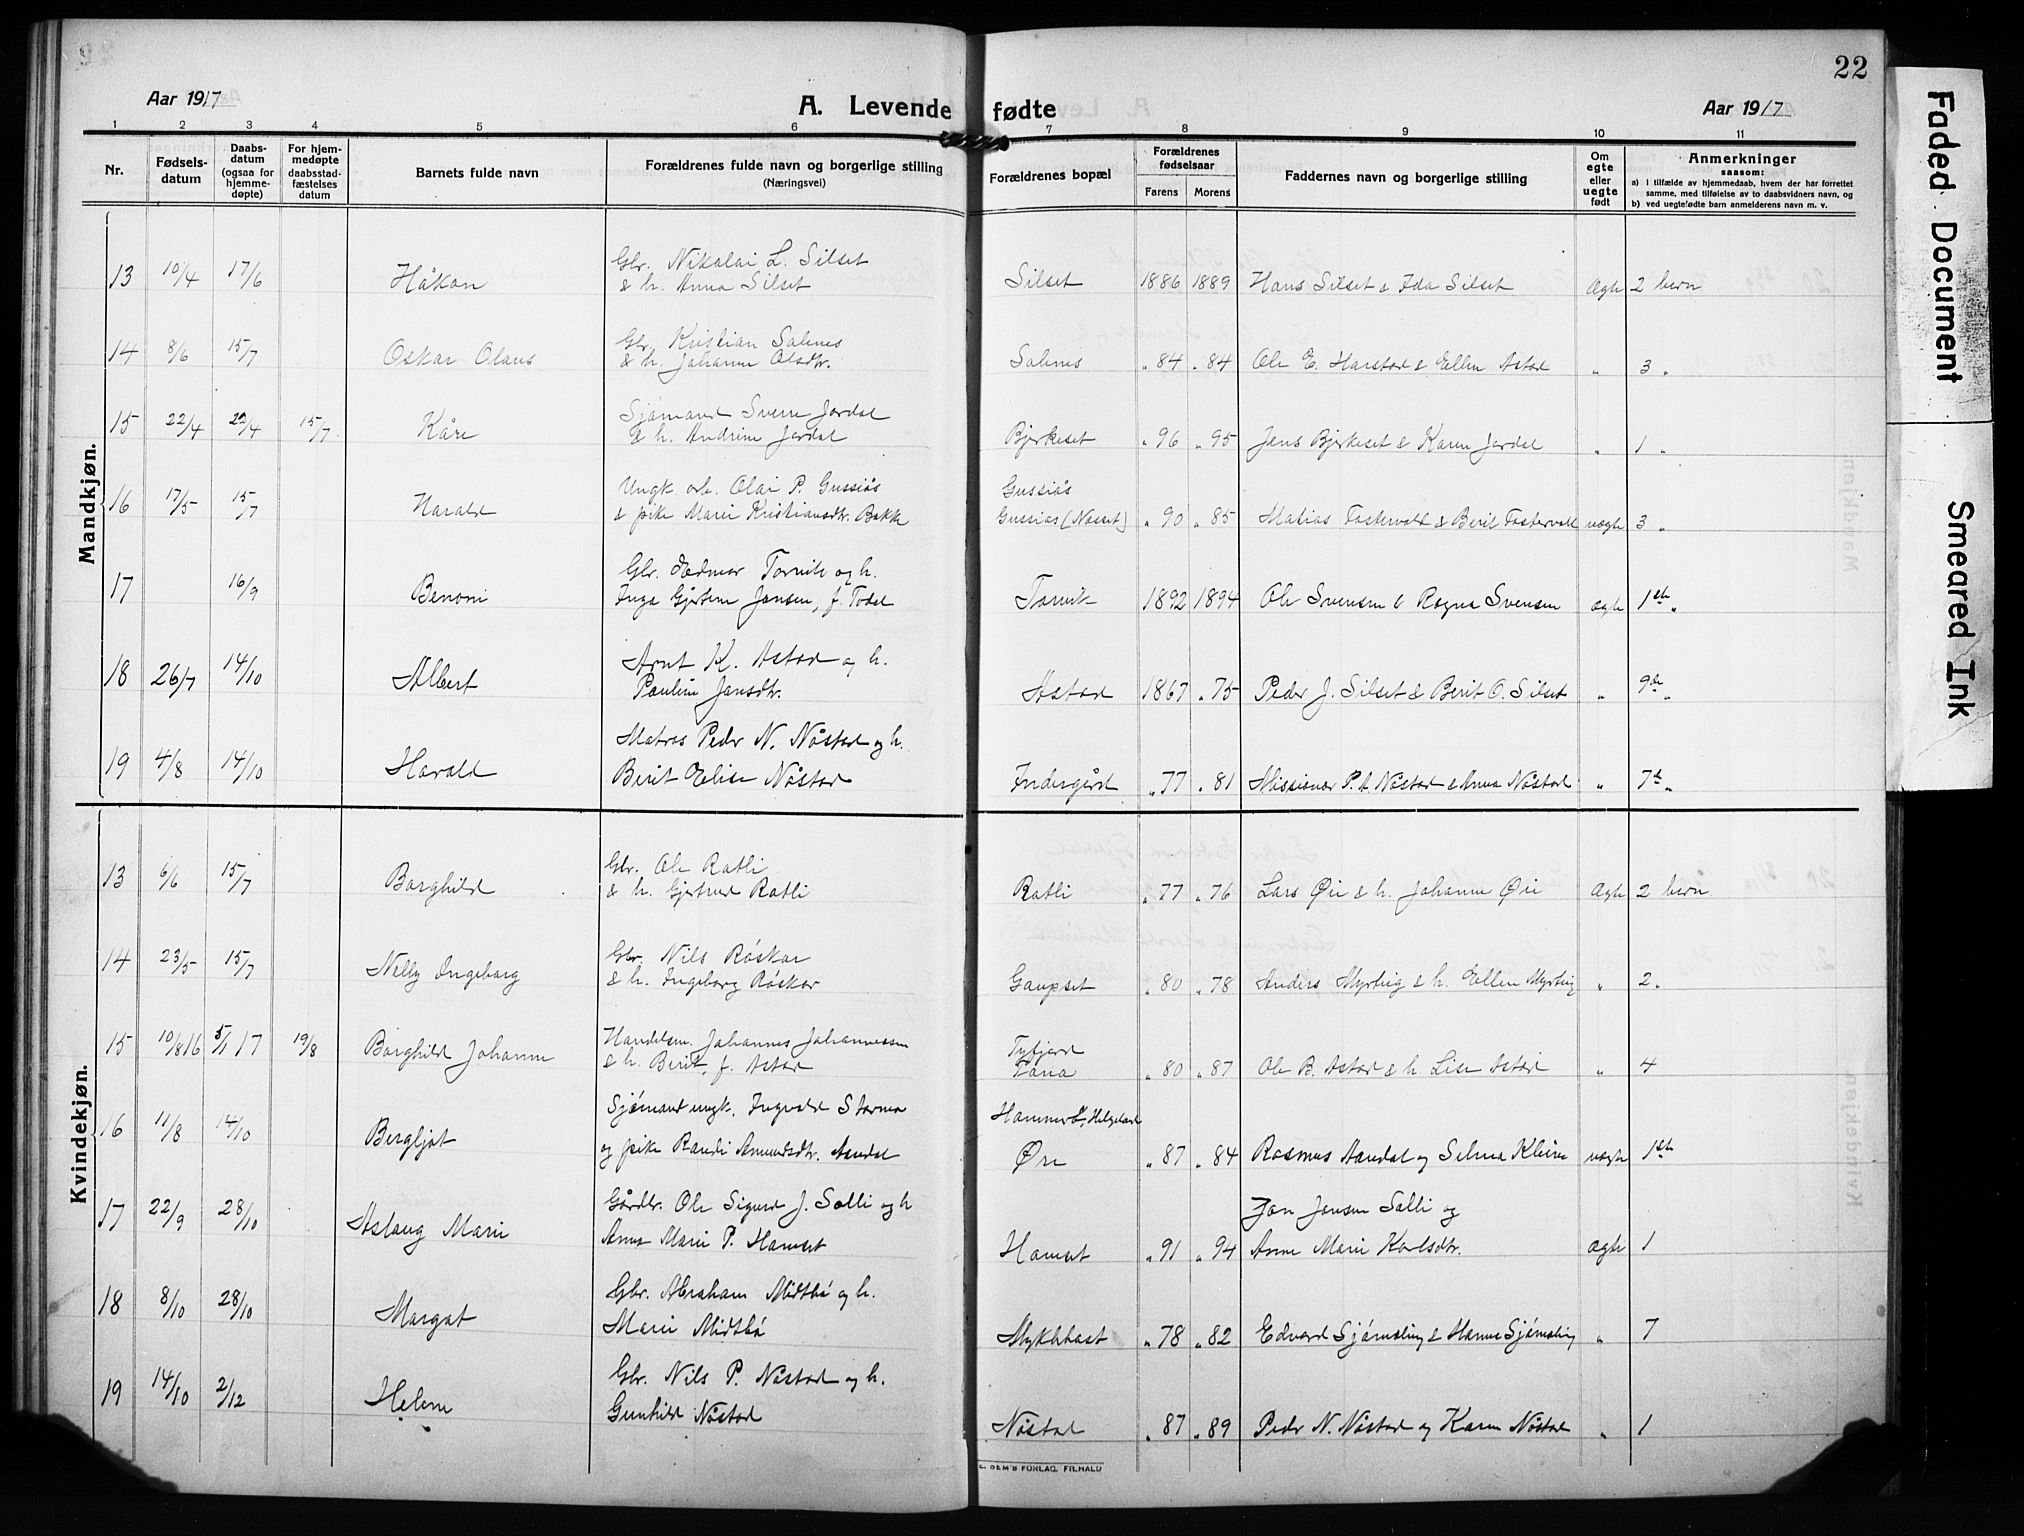 22
Aar 1917
A. Levende fødte
Aar 1917
1 2 3 4 5 6 7 8 9 10 11
Nr.
Fødsels-
datum
Daabs-
datum
(ogsaa for
hjemme-
døpte)
For hjem-
medøpte
daabsstad-
fæstelses
datum
Barnets fulde navn
Forældrenes fulde navn og borgerlige stilling
(Næringsvei)
Forældrenes bopæl
Forældrenes
fødselsaar
Farens Morens
Faddernes navn og borgerlige stilling
Om
egte
eller
uegte
født
Anmerkninger
saasom:
a) I tilfælde av hjemmedaab, hvem der har forrettet
samme, med tilføielse av to daabsvidners navn, og
b) ved uegtefødte barn anmelderens navn m. v.
Mandkjøn.
Gbr. Nikolai L. Silset
13 10/4 17/6 Håkon & h. Anna Silset Silset 1886 1889 Hans Silset & Ida Silset Ægte 2 barn
Gbr. Kristian Solenes
14 8/6 15/7 Oskar Olaus & h. Johanne Olsdtr. Solenes " 84 " 84 Ole E. Harstad & Ellen Astad " 3 "
Sjømand Sverre Jordal
15 22/4 22/4 15/7 Kåre & h. Andrine Jordal Bjerkeset " 96 " 95 Jens Bjerkeset & Karen Jordal " 1 "
Ungk. arb. Olai P. Gussiås Gussiås
16 17/5 15/7 Harald & pike Marie Kristiansdtr. Bakke Gussiås (Nesset) " 90 " 85 Matias Fostervold & Berit Fostervold uægte 3 "
Gbr. Edmor Torvik og h.
17 16/9 Benoni Inga Gjertine Jensen, f. Todal Torvik 1892 1894 Ole Svensen & Ragna Svensen ægte 1ste "
Arnt K. Astad og h.
18 26/7 14/10 Albert Pauline Jonsdtr. Astad 1867 " 75 Peder J. Silset & Berit O. Silset " 9de "
Matros Peder N. Nåstad og h.
19 4/8 14/10 Harald Berit Elise Nåstad Indergård " 77 " 81 Missionær P. A. Nåstad & Anna Nåstad " 7de "
Kvindekjøn.
Gbr. Ole Ratli
13 6/6 15/7 Borghild & h. Gjertrud Ratli Ratli " 77 " 76 Lars Øie & h. Johanne Øie Ægte 2 barn
Gbr. Nils Røskar
14 23/5 15/7 Nelly Ingeborg & h. Ingeborg Røskar Gaupset " 80 " 78 Anders Myrteig & h. Ellen Myrteig " 2 "
Handelsm. Johannes Johannessen Tyfjord
15 10/8 16 5/1 17 19/8 Borghild Johanne & h. Berit, f. Astad Tana " 80 " 87 Ole B. Astad & h. Lise Astad " 4
Sjømand ungk. Ingvald Storma Hammerö, Helgeland
16 11/8 14/10 Bergljot og pike Randi Amundsdtr. Aandal Øre " 87 " 84 Rasmus Aandal og Selma Kleive uægte 1ste
Gårdbr. Ole Sigurd J. Solli og h Jon Jonsen Solli og
17 22/9 28/10 Aslaug Marie Anne Marie P. Hamset Hamset " 91 " 94 Anne Marie Karlsdtr. ægte 1
Gbr. Abraham Midtbø og h.
18 8/10 28/10 Margot Marie Midtbø Myklebost " 78 " 82 Edvard Sjømæling & Hanna Sjømæling " 7
Gbr. Nils P. Nåstad og h.
19 14/10 2/12 Helene Gunhild Nåstad Nåstad " 87 " 89 Peder N. Nåstad og Karen Nåstad " 1
SEM'S FORLAG, FR.HALD
Faded Document
Smeared Ink